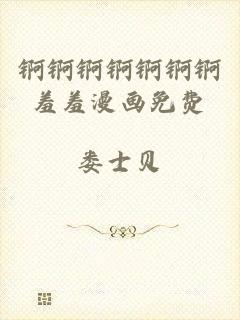 锕锕锕锕锕锕锕
羞羞漫画免费
娄士贝